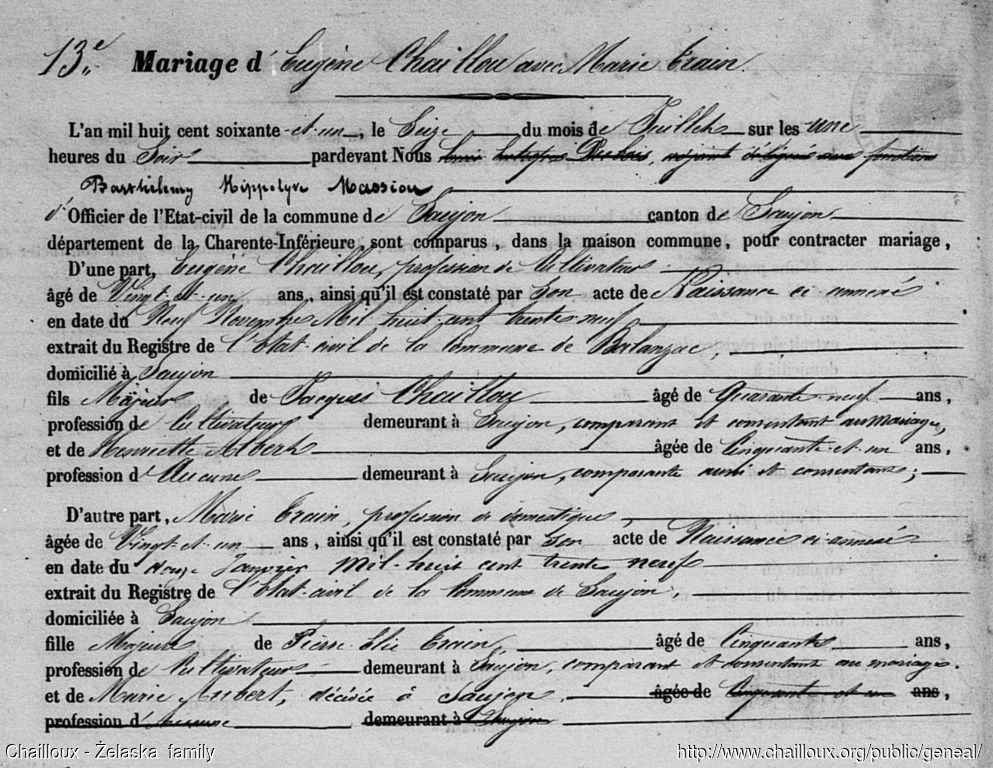 13e Mariage d' Eugène Chaillou avec Marie Train
L'an mil huit cent soixante-et-un, le Seize du mois de Juillet sur les une
heures du Soir pardevant Nous adjoint délégué aux fonctions
Barthélemy Hippolyte Massiou
d'Officier de l'Etat-civil de la commune de Saujon canton de Saujon
département de la Charente-Inférieure, sont comparus, dans la maison commune, pour contracter mariage,
D'une part, Eugène Chaillou, profession de Cultivateur
âgé de Vingt-et-un ans, ainsi qu'il est constaté par Son acte de Naissance ci-annexé
en date du Neuf Novembre Mil huit cent trente neuf
extrait du Registre de l'Etat-civil de la Commune de Balanzac,
domicilié à Saujon
fils Majeur de Jacques Chaillou âgé de Quarante-neuf ans,
profession de Cultivateur demeurant à Saujon, comparant et consentant au mariage,
et de Henriette Albert âgée de Cinquante-et-un ans,
profession d'Aucune demeurant à Saujon, comparante aussi et consentante;
D'autre part, Marie Train, profession de domestique,
âgée de Vingt-et-un ans, ainsi qu'il est constaté par Son acte de Naissance ci-annexé
en date du Janvier Mil-huit cent trente neuf
extrait du Registre de l'Etat-civil de la Commune de Saujon,
domiciliée à Saujon
fille Majeure de Pierre Elie Train, âgé de Cinquante ans,
profession de Cultivateur demeurant à Saujon, comparant et consentant au mariage.
et de Marie Aubert, décédée à Saujon. âgée de Cinquante et un ans,
profession d'aucune demeurant à Saujon
Chailloux - Żelaska family http://www.chailloux.org/public/geneal/